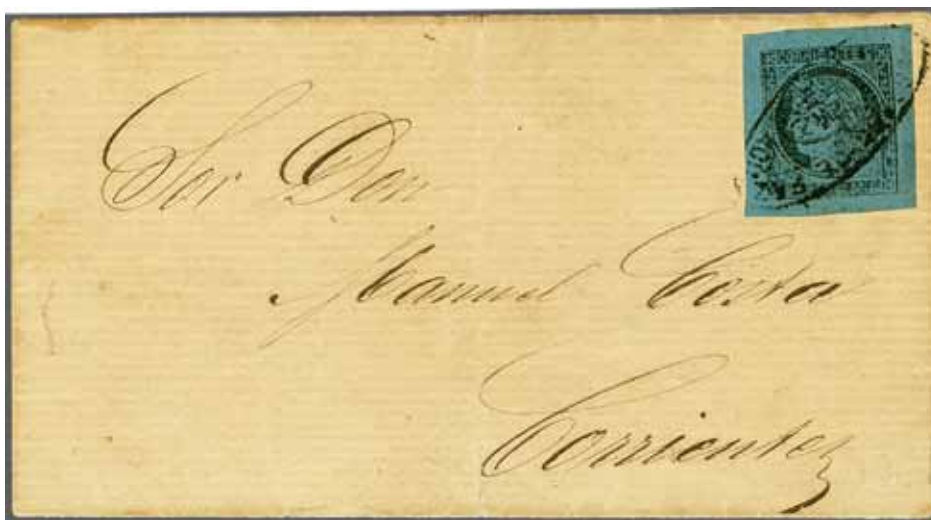 Sor Don
Manuel Costa
Corrientes